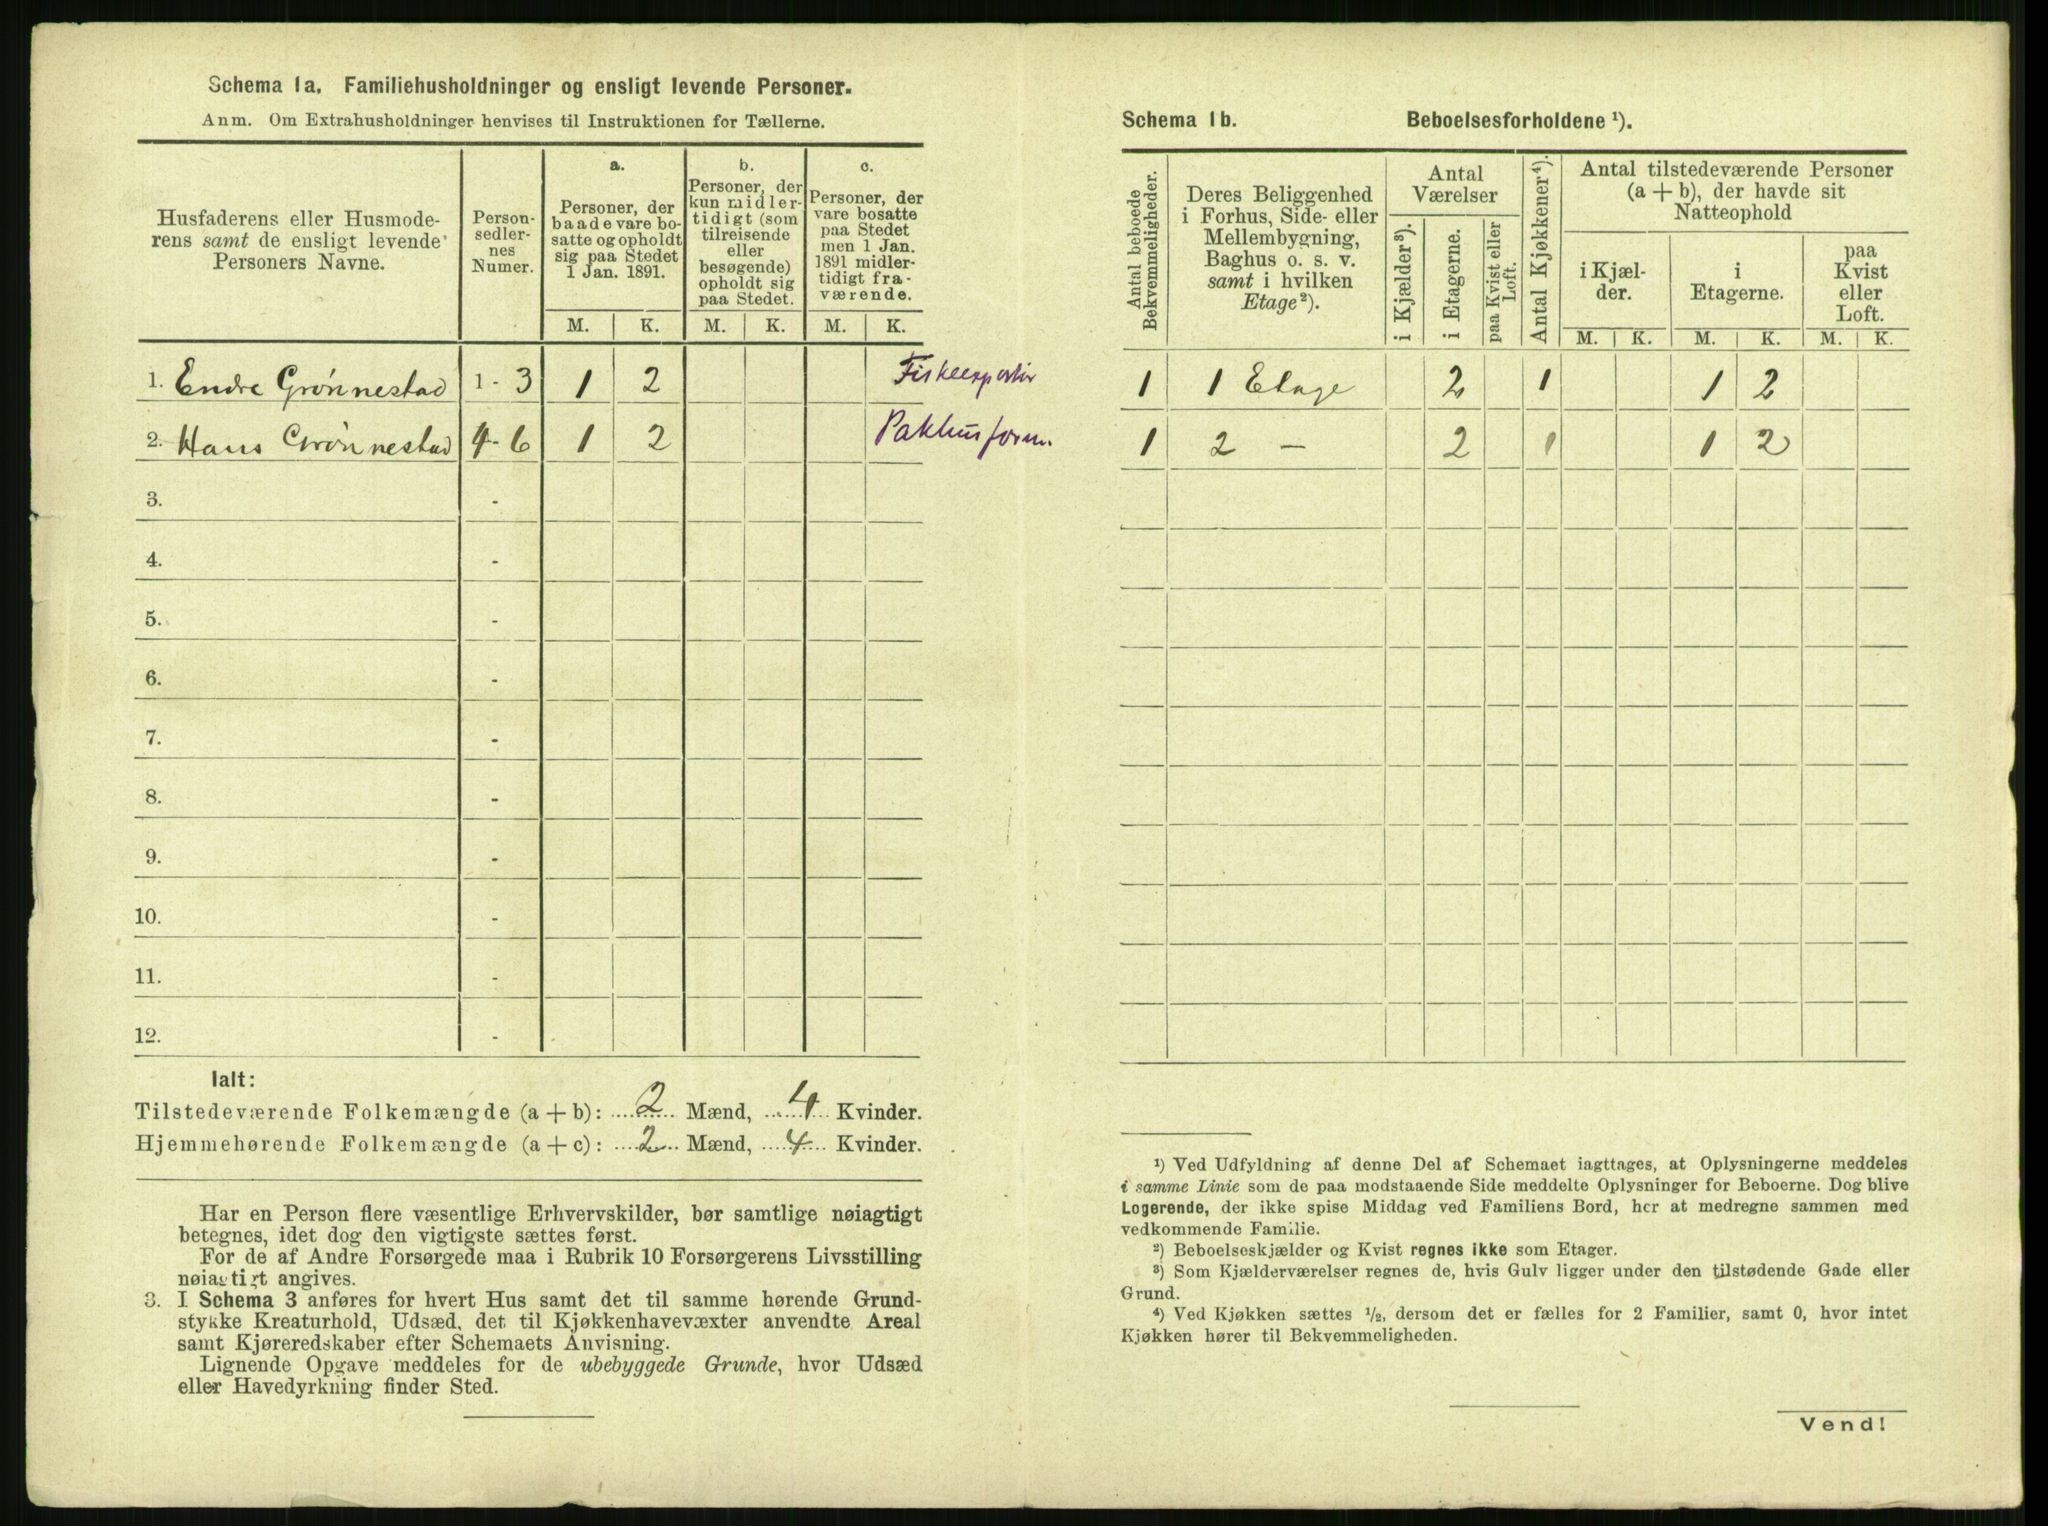 Schema 1a. Familiehusholdninger og ensligt levende Personer.
Anm. Om Extrahusholdninger henvises til Instruktionen for Tællerne.
Husfaderens eller Husmode-
rens samt de ensligt levende
Personers Navne.
Person-
sedler-
nes
Numer.
a.
Personer, der
baade vare bo-
satte og opholdt
sig paa Stedet
1 Jan. 1891.
b.
Personer, der
kun midler-
tidigt (som
tilreisende
eller
besøgende)
opholdt sig
paa Stedet.
c.
Personer, der
vare bosatte
paa Stedet
men 1 Jan.
1891 midler-
tidigt fra-
værende.
M. K. M. K. M. K.
1. Endre Grönnestad 1 - 3 1 2 Fiskeexportör
2. Hans Grönnestad 4 - 6 1 2 Pakhusform.
3. -
4. -
5. -
6. -
7. -
8. -
9. -
10. -
11. -
12. -
Ialt:
Tilstedeværende Folkemængde (a + b): 2 Mænd, 4 Kvinder.
Hjemmehørende Folkemængde (a + c): 2 Mænd, 4 Kvinder.
Har en Person flere væsentlige Erhvervskilder, bør samtlige nøiagtigt
betegnes, idet dog den vigtigste sættes først.
For de af Andre Forsørgede maa i Rubrik 10 Forsørgerens Livsstilling
nøiagtigt angives.
3. I Schema 3 anføres for hvert Hus samt det til samme hørende Grund-
stykke Kreaturhold, Udsæd, det til Kjøkkenhavevæxter anvendte Areal
samt Kjøreredskaber efter Schemaets Anvisning.
Lignende Opgave meddeles for de ubebyggede Grunde, hvor Udsæd
eller Havedyrkning finder Sted.
Schema 1b. Beboelsesforholdene ¹).
Antal beboede
Bekvemmeligheder.
Deres Beliggenhed
i Forhus, Side- eller
Mellembygning,
Baghus o. s. v.
samt i hvilken
Etage ²).
Antal
Værelser
i Kjælder ³).
i Etagerne.
paa Kvist eller
Loft.
Antal Kjøkkener ⁴).
Antal tilstedeværende Personer
(a + b), der havde sit
Natteophold
i Kjæl-
der.
i
Etagerne.
paa
Kvist
eller
Loft.
M. K. M. K. M. K.
1 1 Etage 2 1 1 2
1 2 — 2 1 1 2
¹) Ved Udfyldning af denne Del af Schemaet iagttages, at Oplysningerne meddeles
i samme Linie som de paa modstaaende Side meddelte Oplysninger for Beboerne. Dog blive
Logerende, der ikke spise Middag ved Familiens Bord, her at medregne sammen med
vedkommende Familie.
²) Beboelseskjælder og Kvist regnes ikke som Etager.
³) Som Kjælderværelser regnes de, hvis Gulv ligger under den tilstødende Gade eller
Grund.
⁴) Ved Kjøkken sættes ½, dersom det er fælles for 2 Familier, samt 0, hvor intet
Kjøkken hører til Bekvemmeligheden.
Vend!